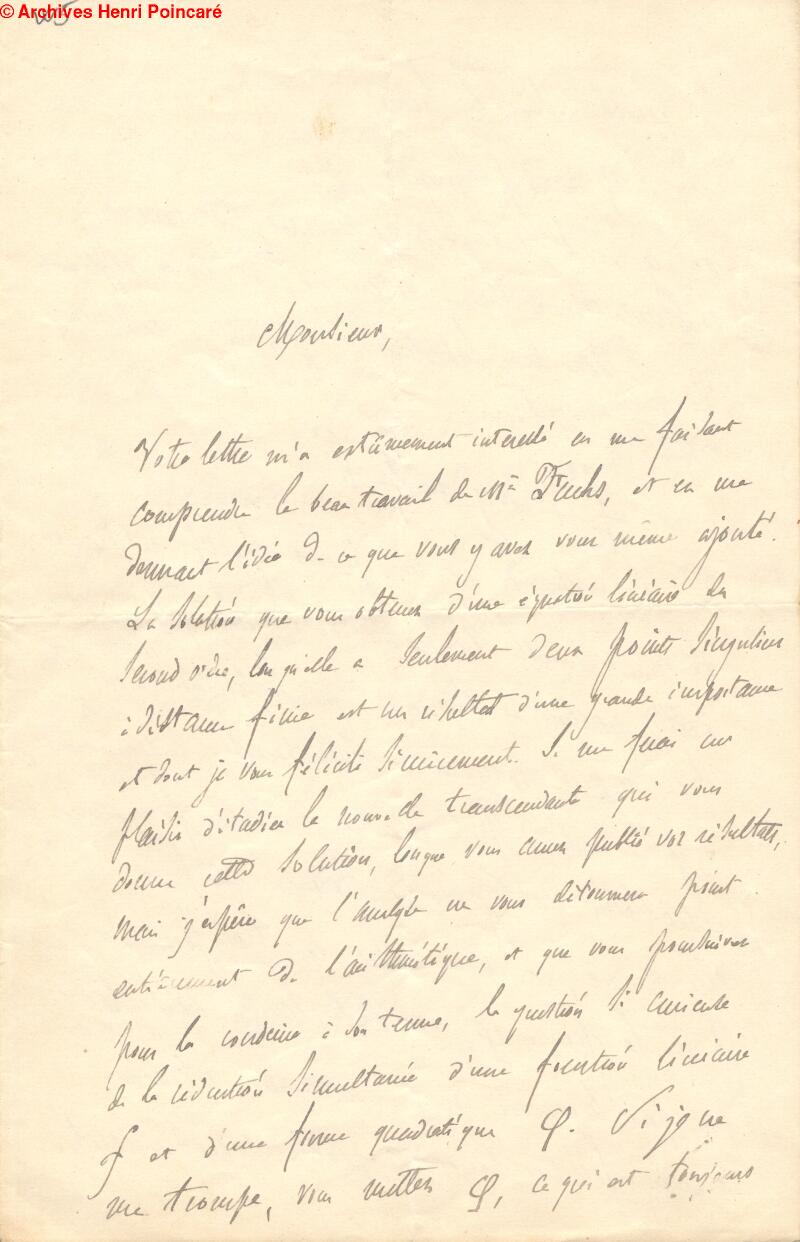 © Archives Henri Poincaré
Monsieur,
Votre lettre m'a extrêmement interessé en me faisant
comprendre le beau travail de Mr Fuchs, et en me
donnant l'idée de ce que vous y avez vous même ajouté.
La solution que vous obtenez d'une équation linéaire du
second ordre, lorsqu'elle a seulement deux points singuliers
à distance finie est un résultat d'une grande importance
et dont je vous félicite sincèrement. Je me ferai un
plaisir d'étudier la nouvelle transcendante qui vous
donne cette solution, lorsque vous aurez publié vos résultats,
mais j'espère que l'analyse ne vous détournera point
entièrement de l'arithmétique, et que vous poursuivrez
pour la conduire à son terme, la question si curieuse
de la réduction simultanée d'une fonction linéaire
f et d'une forme quadratique φ. Si je ne
me trompe, vous mettez φ, ce qui est toujours